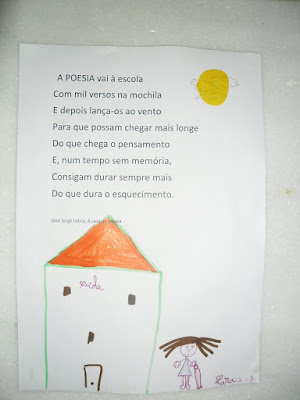 A POESIA vai à escola
Com mil versos na mochila
E depois lança-os ao vento
Para que possam chegar mais longe
Do que chega o pensamento
E, num tempo sem memória,
Consigam durar sempre mais
Do que dura o esquecimento.
José Jorge Letria, A casa da poesia
escola